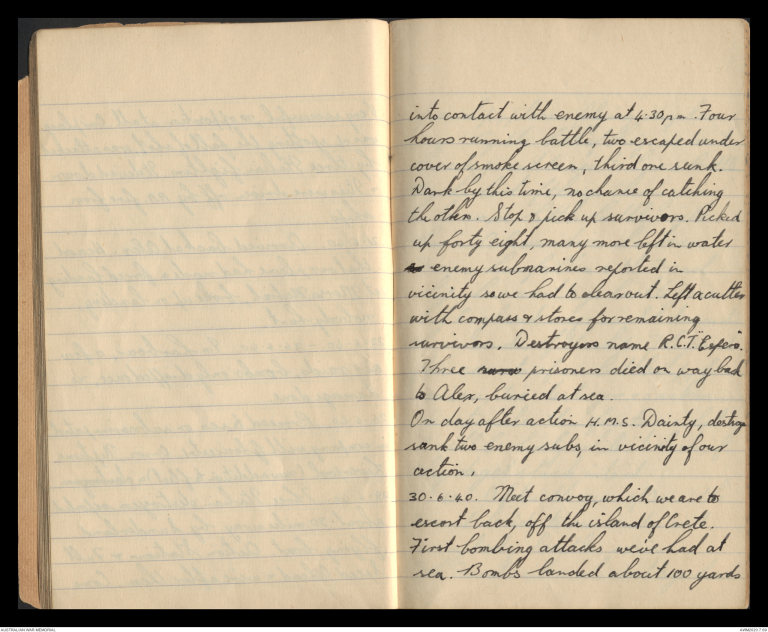 into contact with enemy at 4.30pm. Four
hours running battle, two escaped under
cover of smoke screen, third one sunk.
Dark by this time, no chance of catching
the others. Stop & pick up survivors. Picked
up forty eight, many more left in water
as enemy submarines reported in
vicinity so we had to clear out. Left a cutter
with compass & stores for remaining
survivors. Destroyers name R.C.T. "Espero".
Three prisoners died on way back
to Alex, buried at sea.
On day after action H.M.S. Dainty, destroyer
sank two enemy subs, in vicinity of our
action.
30.6.40. Meet convoy, which we are to
escort back, off the island of Crete.
First bombing attacks we've had at
sea. Bombs landed about 100 yards
AUSTRALIAN WAR MEMORIAL